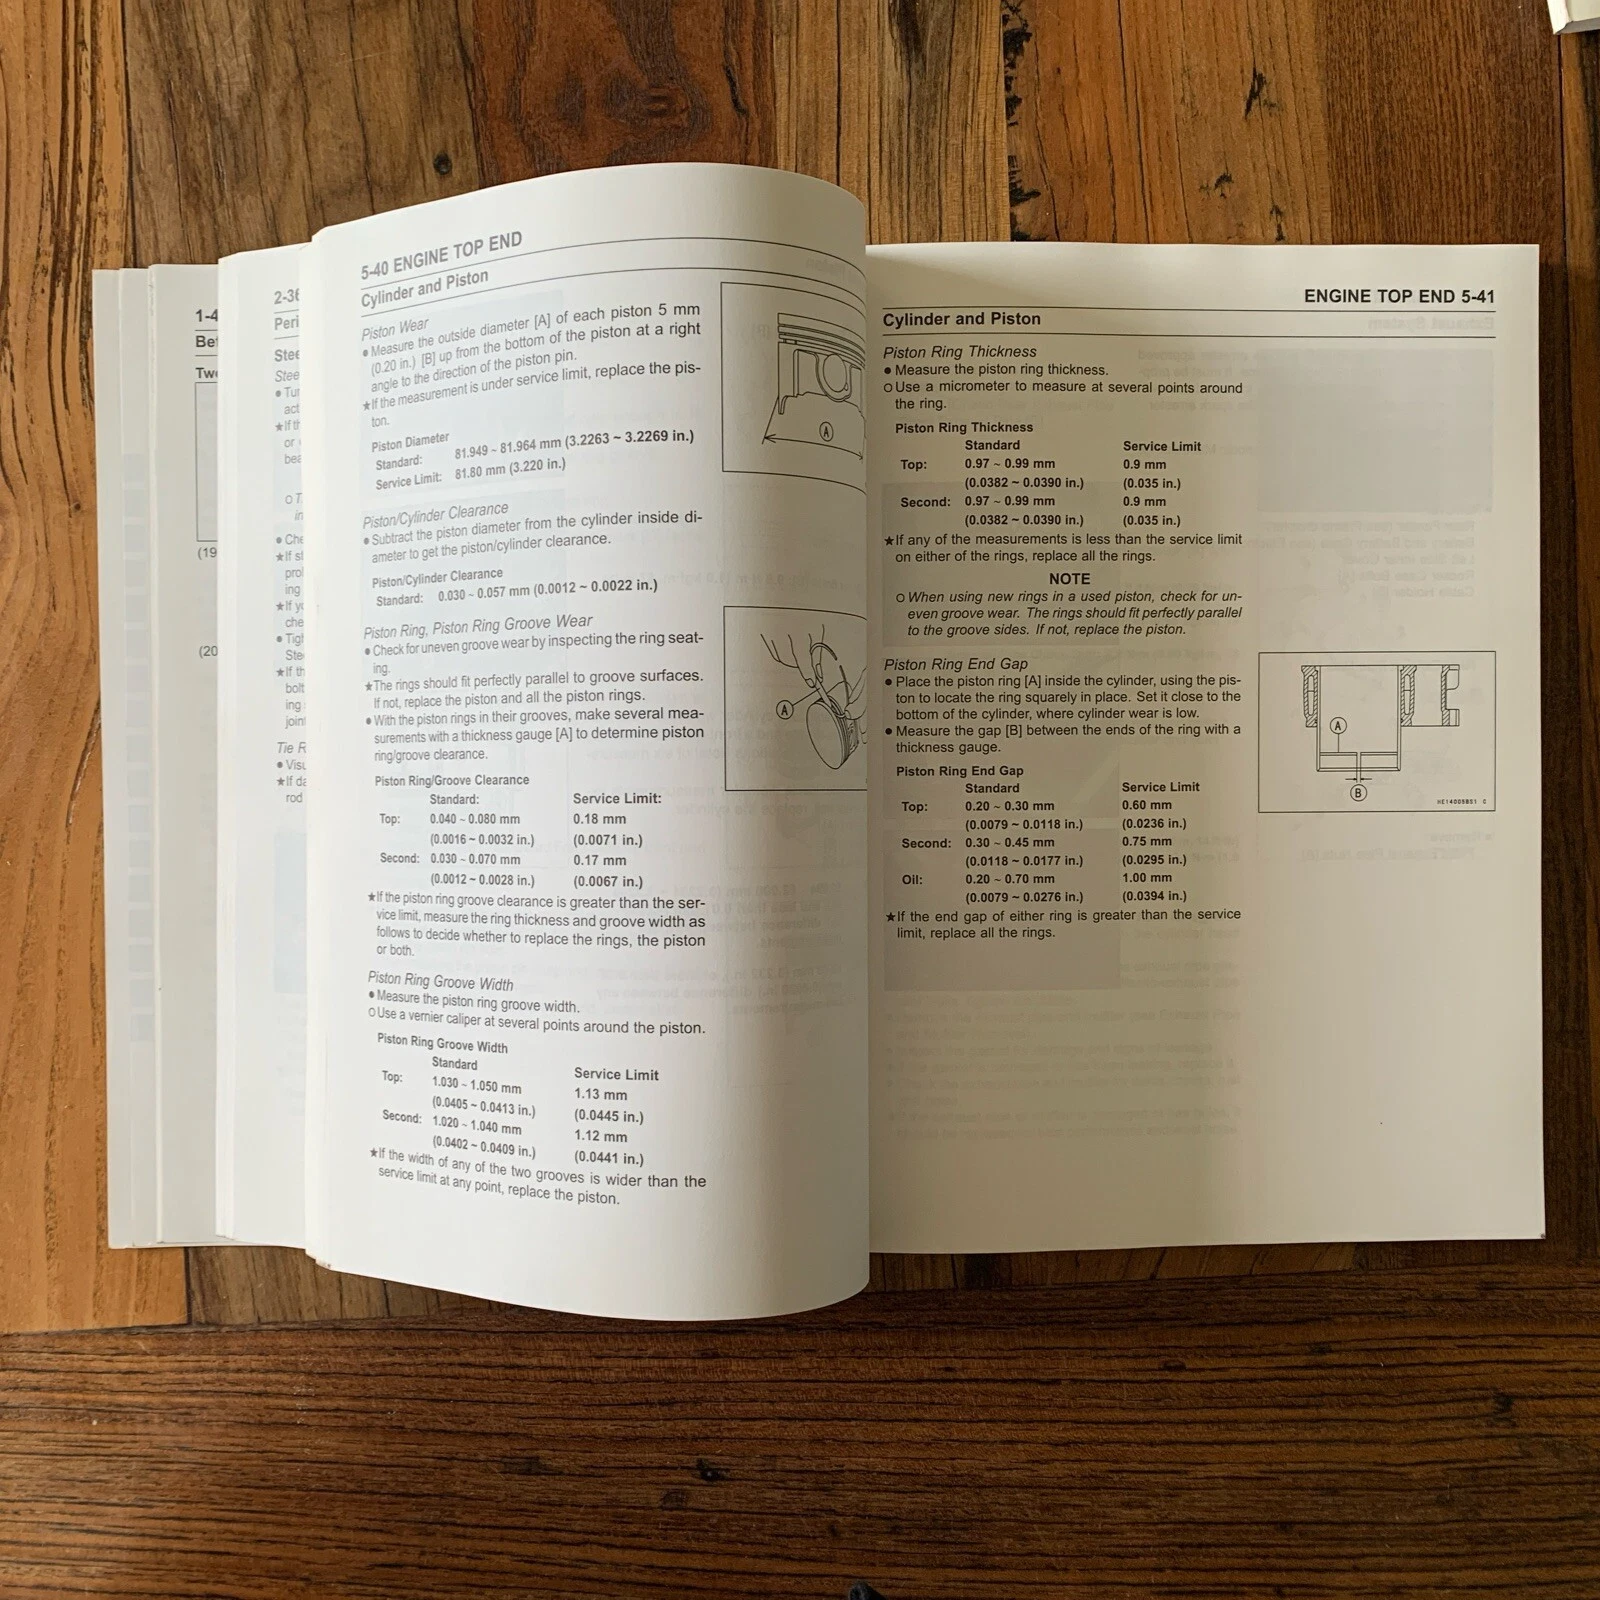 1-4
Bef
Two
(19
(20
2-36
Peri
Stee
Stee
● Tur
act
★If th
or
bea
○ T
in
● Che
★If st
prol
ing
★If yo
che
● Tigh
Stee
★If th
bolt
ing
joint
Tie R
● Visu
★If da
rod
5-40 ENGINE TOP END
Cylinder and Piston
Piston Wear
● Measure the outside diameter [A] of each piston 5 mm
(0.20 in.) [B] up from the bottom of the piston at a right
angle to the direction of the piston pin.
★If the measurement is under service limit, replace the pis-
ton.
Piston Diameter
Standard: 81.949 ~ 81.964 mm (3.2263 ~ 3.2269 in.)
Service Limit: 81.80 mm (3.220 in.)
A
Piston/Cylinder Clearance
● Subtract the piston diameter from the cylinder inside di-
ameter to get the piston/cylinder clearance.
Piston/Cylinder Clearance
Standard: 0.030 ~ 0.057 mm (0.0012 ~ 0.0022 in.)
Piston Ring, Piston Ring Groove Wear
● Check for uneven groove wear by inspecting the ring seat-
ing.
★The rings should fit perfectly parallel to groove surfaces.
If not, replace the piston and all the piston rings.
● With the piston rings in their grooves, make several mea-
surements with a thickness gauge [A] to determine piston
ring/groove clearance.
A
Piston Ring/Groove Clearance
Standard: Service Limit:
Top: 0.040 ~ 0.080 mm 0.18 mm
(0.0016 ~ 0.0032 in.) (0.0071 in.)
Second: 0.030 ~ 0.070 mm 0.17 mm
(0.0012 ~ 0.0028 in.) (0.0067 in.)
★If the piston ring groove clearance is greater than the ser-
vice limit, measure the ring thickness and groove width as
follows to decide whether to replace the rings, the piston
or both.
Piston Ring Groove Width
● Measure the piston ring groove width.
○ Use a vernier caliper at several points around the piston.
Piston Ring Groove Width
Standard Service Limit
Top: 1.030 ~ 1.050 mm 1.13 mm
(0.0405 ~ 0.0413 in.) (0.0445 in.)
Second: 1.020 ~ 1.040 mm 1.12 mm
(0.0402 ~ 0.0409 in.) (0.0441 in.)
★If the width of any of the two grooves is wider than the
service limit at any point, replace the piston.
ENGINE TOP END 5-41
Cylinder and Piston
Piston Ring Thickness
● Measure the piston ring thickness.
○ Use a micrometer to measure at several points around
the ring.
Piston Ring Thickness
Standard Service Limit
Top: 0.97 ~ 0.99 mm 0.9 mm
(0.0382 ~ 0.0390 in.) (0.035 in.)
Second: 0.97 ~ 0.99 mm 0.9 mm
(0.0382 ~ 0.0390 in.) (0.035 in.)
★If any of the measurements is less than the service limit
on either of the rings, replace all the rings.
NOTE
○ When using new rings in a used piston, check for un-
even groove wear. The rings should fit perfectly parallel
to the groove sides. If not, replace the piston.
Piston Ring End Gap
● Place the piston ring [A] inside the cylinder, using the pis-
ton to locate the ring squarely in place. Set it close to the
bottom of the cylinder, where cylinder wear is low.
● Measure the gap [B] between the ends of the ring with a
thickness gauge.
Piston Ring End Gap
Standard Service Limit
Top: 0.20 ~ 0.30 mm 0.60 mm
(0.0079 ~ 0.0118 in.) (0.0236 in.)
Second: 0.30 ~ 0.45 mm 0.75 mm
(0.0118 ~ 0.0177 in.) (0.0295 in.)
Oil: 0.20 ~ 0.70 mm 1.00 mm
(0.0079 ~ 0.0276 in.) (0.0394 in.)
★If the end gap of either ring is greater than the service
limit, replace all the rings.
A
B